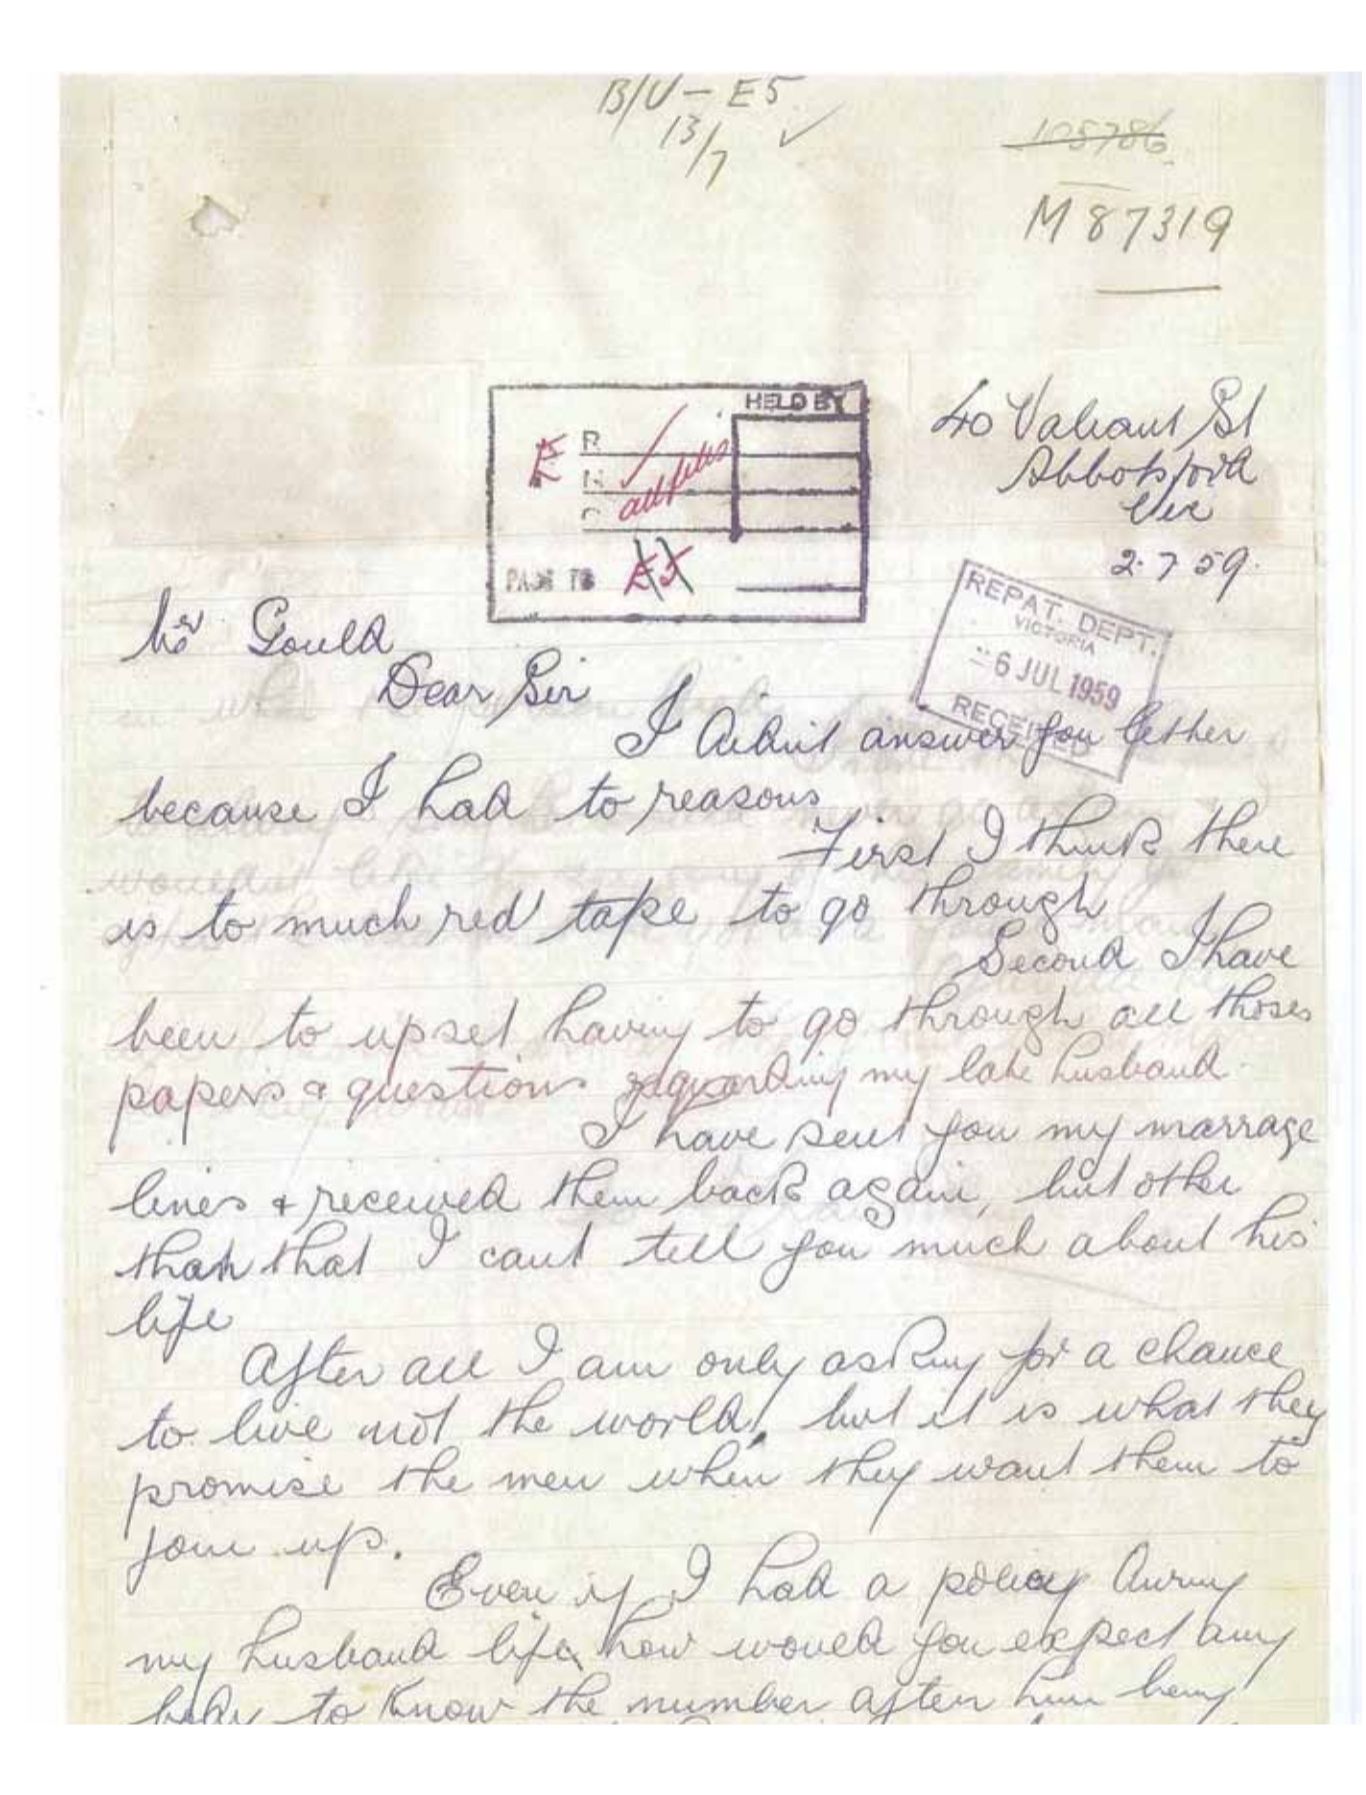 B/U – E5
13/7 ✓
105786
M 87319
HELD BY
E R
N
all files
PASS TO E5
40 Valiant St
Abbotsford
Vic
2.7.59.
REPAT. DEPT.
VICTORIA
6 JUL 1959
RECEIVED
Mr Gould
Dear Sir
I didnt answer you letter
because I had to reasons
First I think there
is to much red tape to go through
Second I have
been to upset having to go through all thoses
papers & questions regarding my late husband.
I have sent you my marrage
lines & received them back again, but other
than that I cant tell you much about his
life
After all I am only asking for a chance
to live not the world, but it is what they
promise the men when they want them to
join up.
Even if I had a policy during
my husband life, how would you expect any
body to know the number after him being